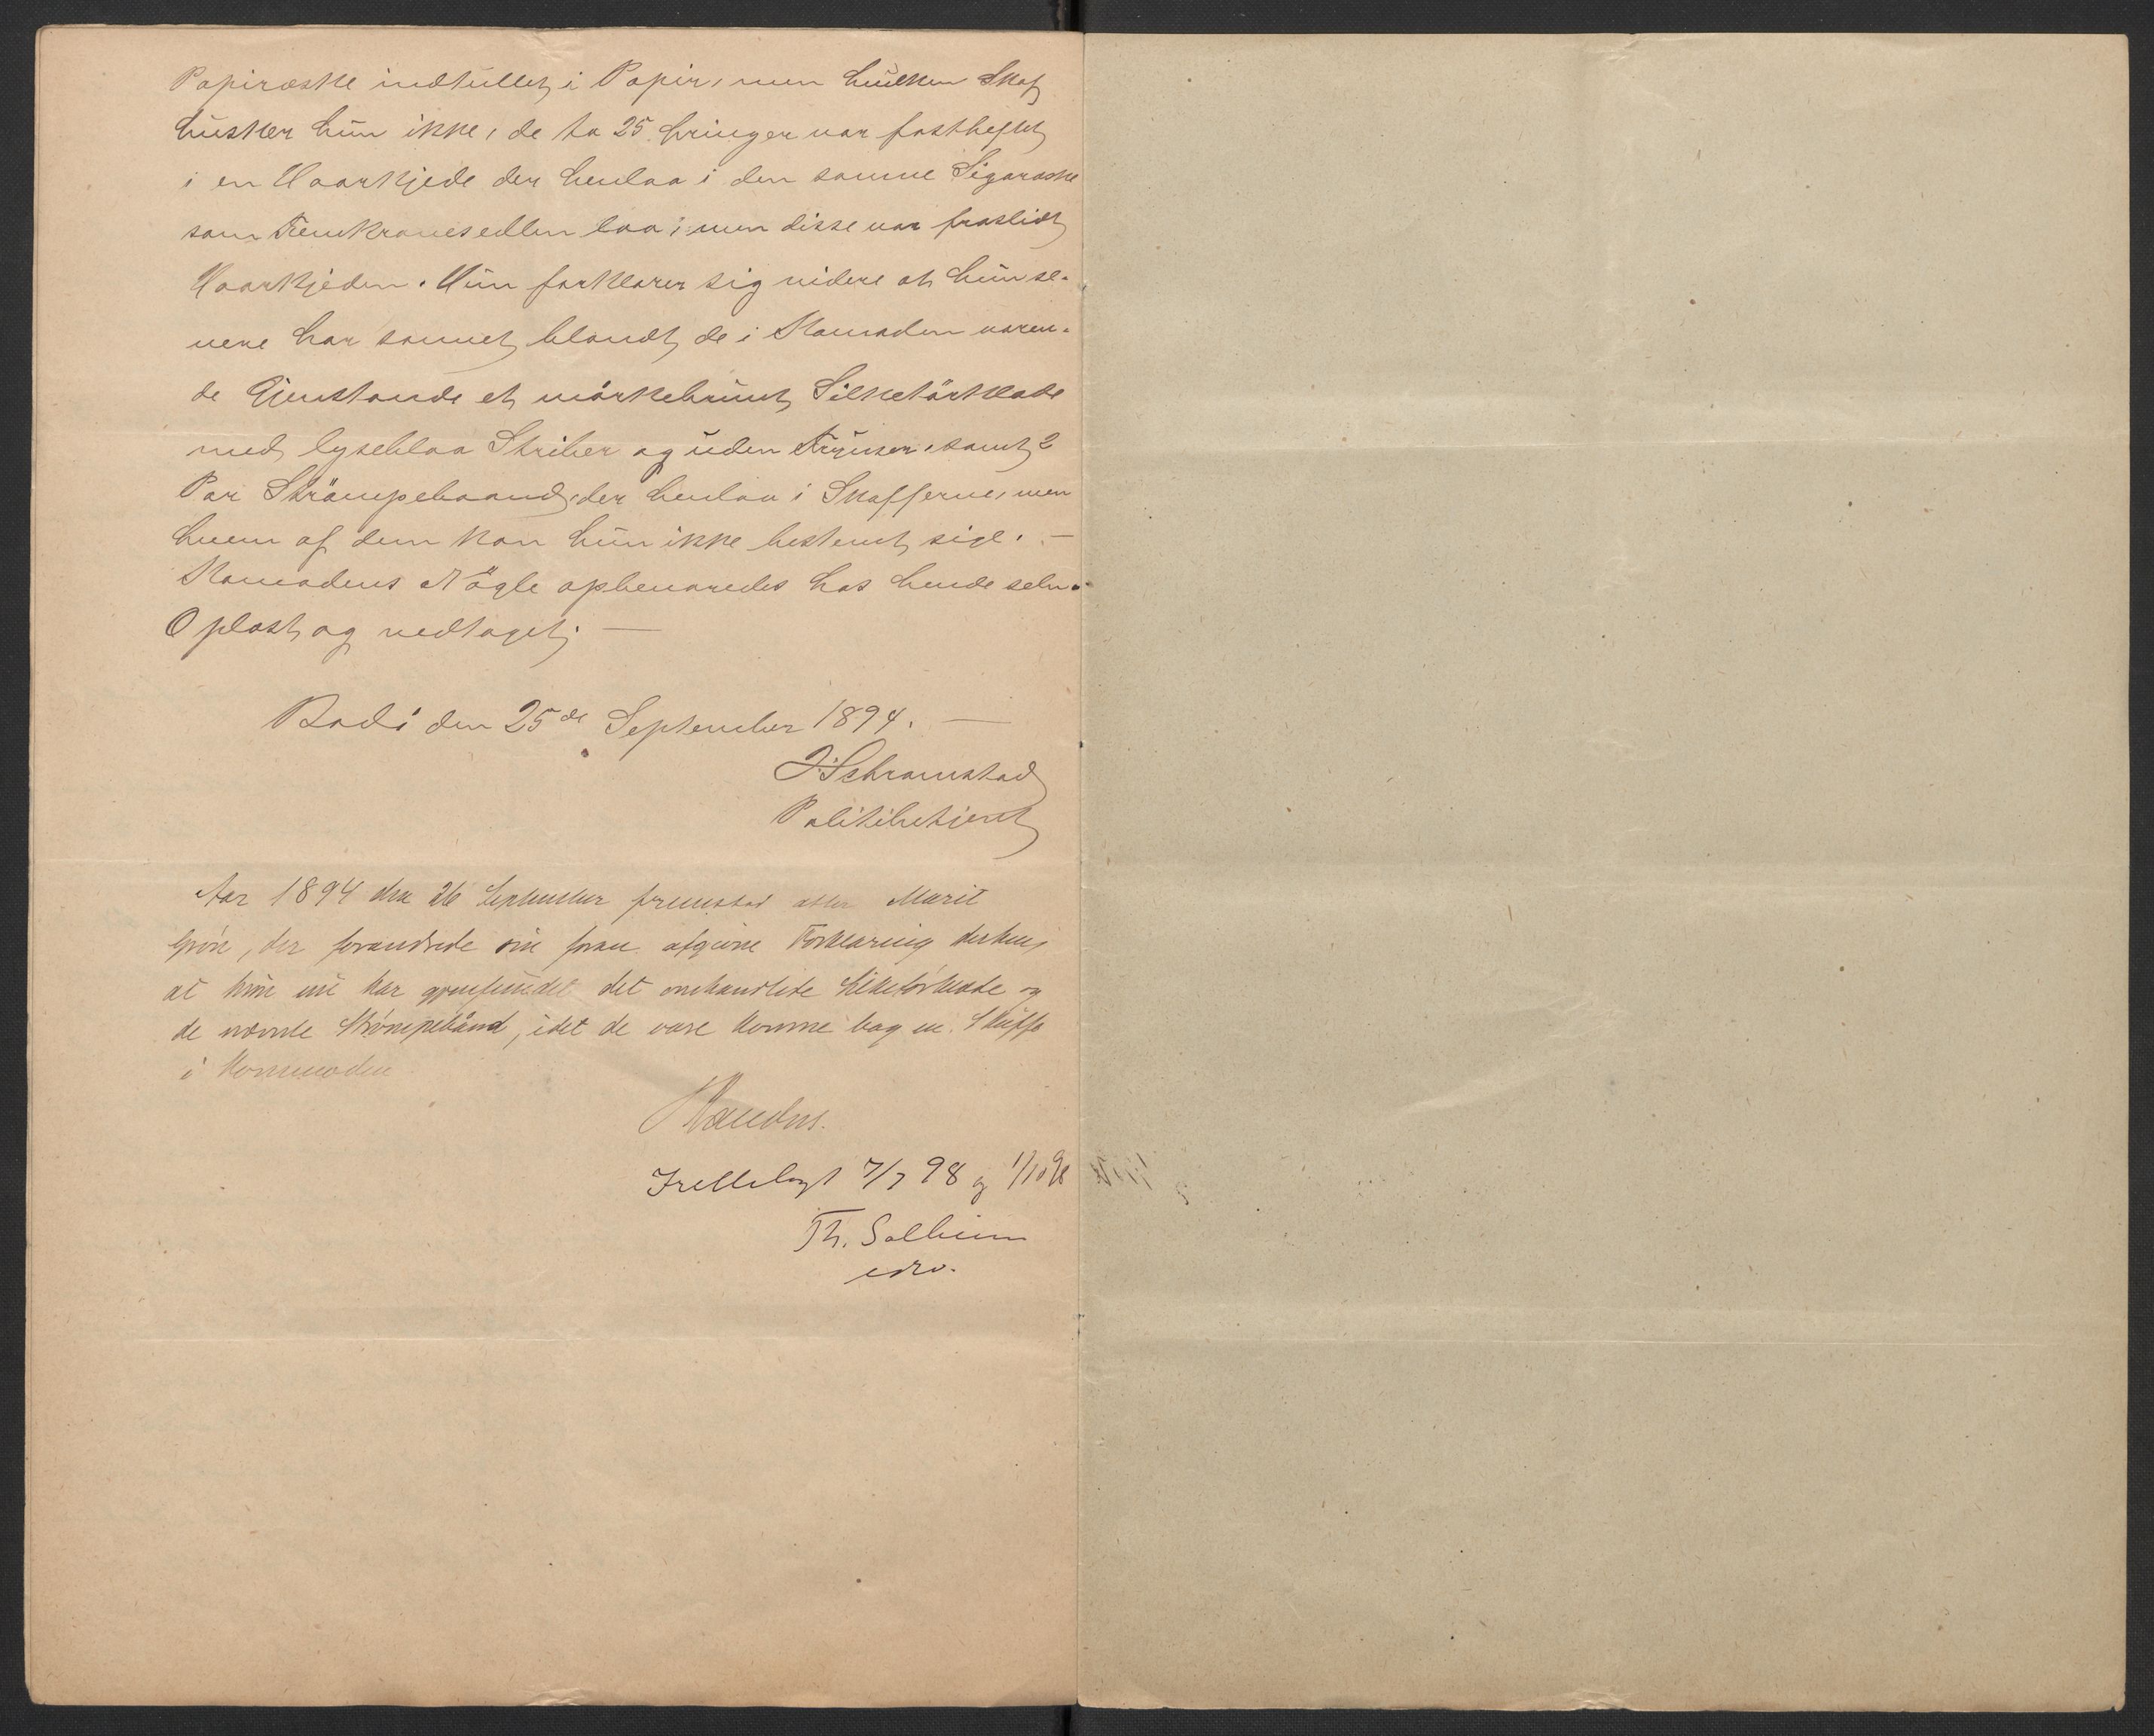 Papiræske indtullet i Papir, men hvilken Skuf
husker hun ikke, de to 25 øringer var fastheftet
i en Haarkjede der henlaa i den samme Sigaræske
som Femkronesedlen laa i men disse var fraslidt
Haarkjeden. Hun forklarer sig videre at hun se-
nere har savnet blandt de i Komaden væren-
de Gjenstande et mørkebrunt Silketørklæde
med lyseblaa Striber og uden Frynser, samt 2
Par Strømpebaand der henlaa i Skufferne, men
hvem af dem kan hun ikke bestemt sige. —
Komadens Nøgle opbevaredes hos hende selv.
Oplæst og vedtaget. —
Bodø den 25de September 1894. —
J. Schramstad
Politibetjent
Aar 1894 den 26 September fremstod atter Marit
Grøn, der forandrede sin foran afgivne Forklaring derhen,
at hun nu har gjenfundet det omhandlede Silketørklæde og
de nævnte Strømpebånd, idet de vare komne bag en Skuffe
i Kommoden
Irettelagt 7/7 98 og 1/10 98
Th. Solheim